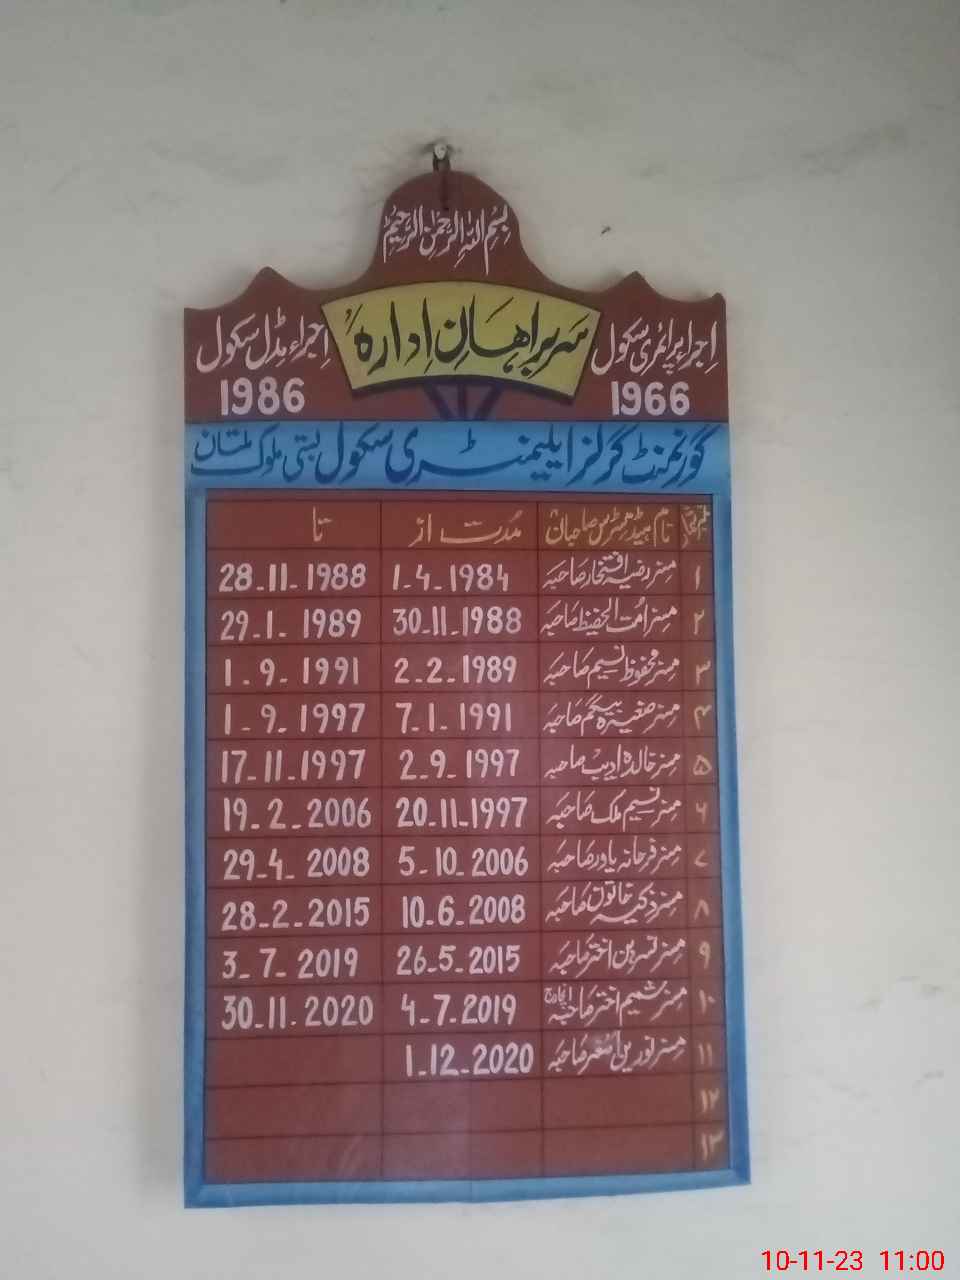 بِسْمِ اللّٰہِ الرَّحْمٰنِ الرَّحِیْمِ
سربراہانِ ادارہ
اجراء پرائمری سکول 1966
اجراء مڈل سکول 1986
گورنمنٹ گرلز ایلیمنٹری سکول بستی ملوک ملتان
نمبر شمار نام ہیڈ مسٹرس صاحبان مُدت از تا
۱ مسز رضیہ افتخار صاحبہ 1-4-1984 28-11-1988
۲ مسز امت الحفیظ صاحبہ 30-11-1988 29-1-1989
۳ مسز محفوظ نسیم صاحبہ 2-2-1989 1-9-1991
۴ مسز صغیرہ بیگم صاحبہ 7-1-1991 1-9-1997
۵ مسز خالدہ ادیب صاحبہ 2-9-1997 17-11-1997
۶ مسز نسیم ملک صاحبہ 20-11-1997 19-2-2006
۷ مسز فرحانہ یاور صاحبہ 5-10-2006 29-4-2008
۸ مسز ذکیہ خاتون صاحبہ 10-6-2008 28-2-2015
۹ مسز نسرین اختر صاحبہ 26-5-2015 3-7-2019
۱۰ مسز شمیم اختر صاحبہ انچارج 4-7-2019 30-11-2020
۱۱ مسز نورین صاحبہ 1-12-2020
۱۲
۱۳
10-11-23 11:00